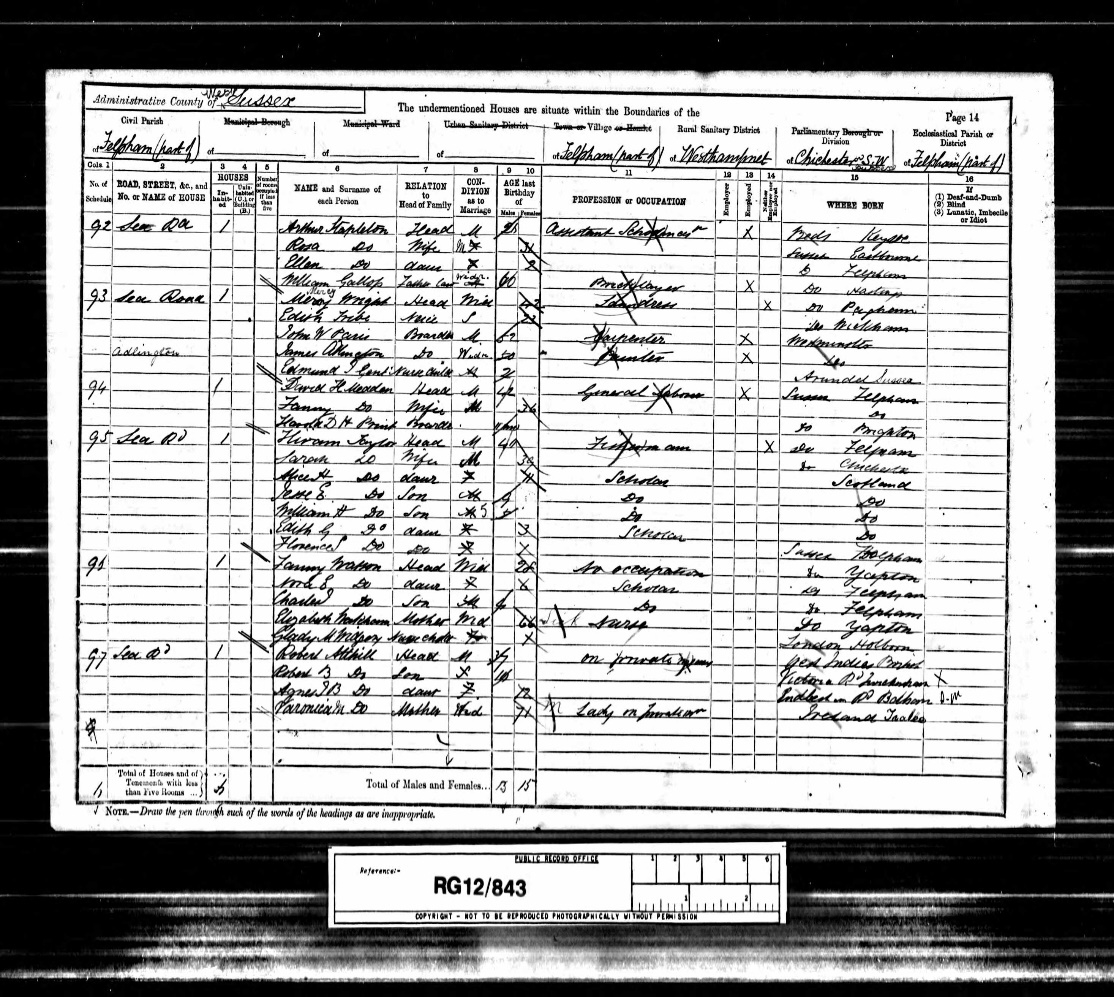 Administrative County of West Sussex
The undermentioned Houses are situate within the Boundaries of the
Page 14
Civil Parish
Municipal Borough
Municipal Ward
Urban Sanitary District
Town or Village or Hamlet
Rural Sanitary District
Parliamentary Borough or Division
Ecclesiastical Parish or District
of Felpham (part of)
of
of
of
of Felpham (part of)
of Westhampnet
of Chichester S.W
of Felpham (part of)
Cols. 1 2 3 4 5 6 7 8 9 10 11 12 13 14 15 16
No. of Schedule
ROAD, STREET, &c., and No. or NAME of HOUSE
HOUSES
Inhabited
Uninhabited (U.) or Building (B.)
Number of rooms occupied if less than five
NAME and Surname of each Person
RELATION to Head of Family
CONDITION as to Marriage
AGE last Birthday of
Males Females
PROFESSION or OCCUPATION
Employer
Employed
Neither Employer nor Employed
WHERE BORN
If (1) Deaf-and-Dumb (2) Blind (3) Lunatic, Imbecile or Idiot
92 Sea Rd 1 Arthur Stapleton Head M Assistant X Beds Keysoe
Rosa Do Wife M 31 Sussex Eastbourne
Ellen Do daur 2 Do Felpham
William Gallop Father Widr 60 Bricklayer X Do Hastings
93 Sea Road 1 Mercy Wright Head Wid 42 Laundress X Do Pagham
Edith Tribe Niece S 23
John W Paris Boarder M Carpenter X Westminster
Adlington James Do Widr 50 Painter X Do
Edmund Gent Nurse child 2 Arundel Sussex
94 1 David H Madden Head M 42 General Labour X Sussex Felpham
Fanny Do Wife M 36 Do
Harold D H Boarder Do Brighton
95 Sea Rd 1 Hiram Taylor Head M 40 Fisherman X Do Felpham
Sarah Do Wife M 39 Do Chichester
Alice H Do daur 11 Scholar Scotland
Jesse E. Do Son 9 Do Do
William H Do Son 5 Do Do
Edith G Do daur 3 Scholar Do
Florence Do Do Sussex Felpham
96 1 Fanny Watson Head Wid 28 No occupation Do Yapton
Nora E. Do daur Scholar Do Felpham
Charles Do Son Do Do Felpham
Elizabeth Mother Wid 66 Sick Nurse Do Yapton
Gladys M Nurse child London Holborn
97 Sea Rd 1 Robert Head M on private means West Indies
Robert B Do Son 10 Victoria Rd X
Agnes B Do daur 12 Rd Balham
Veronica M Do Mother Wid 71 Lady on private Ireland Tralee
Total of Houses and of Tenements with less than Five Rooms
5
Total of Males and Females... 13 15
NOTE.—Draw the pen through such of the words of the headings as are inappropriate.
PUBLIC RECORD OFFICE
Reference:-
RG12/843
1 2 3 4 5 6
1 2
COPYRIGHT - NOT TO BE REPRODUCED PHOTOGRAPHICALLY WITHOUT PERMISSION